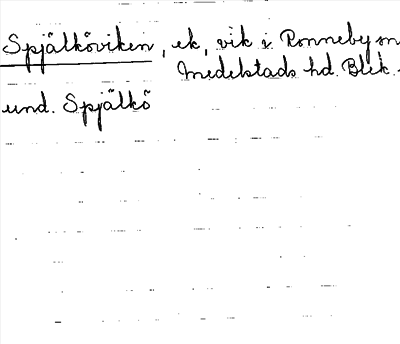 Spjälköviken, ek, vik i Ronneby sn
Medelstads hd. Blek.
und. Spjälkö